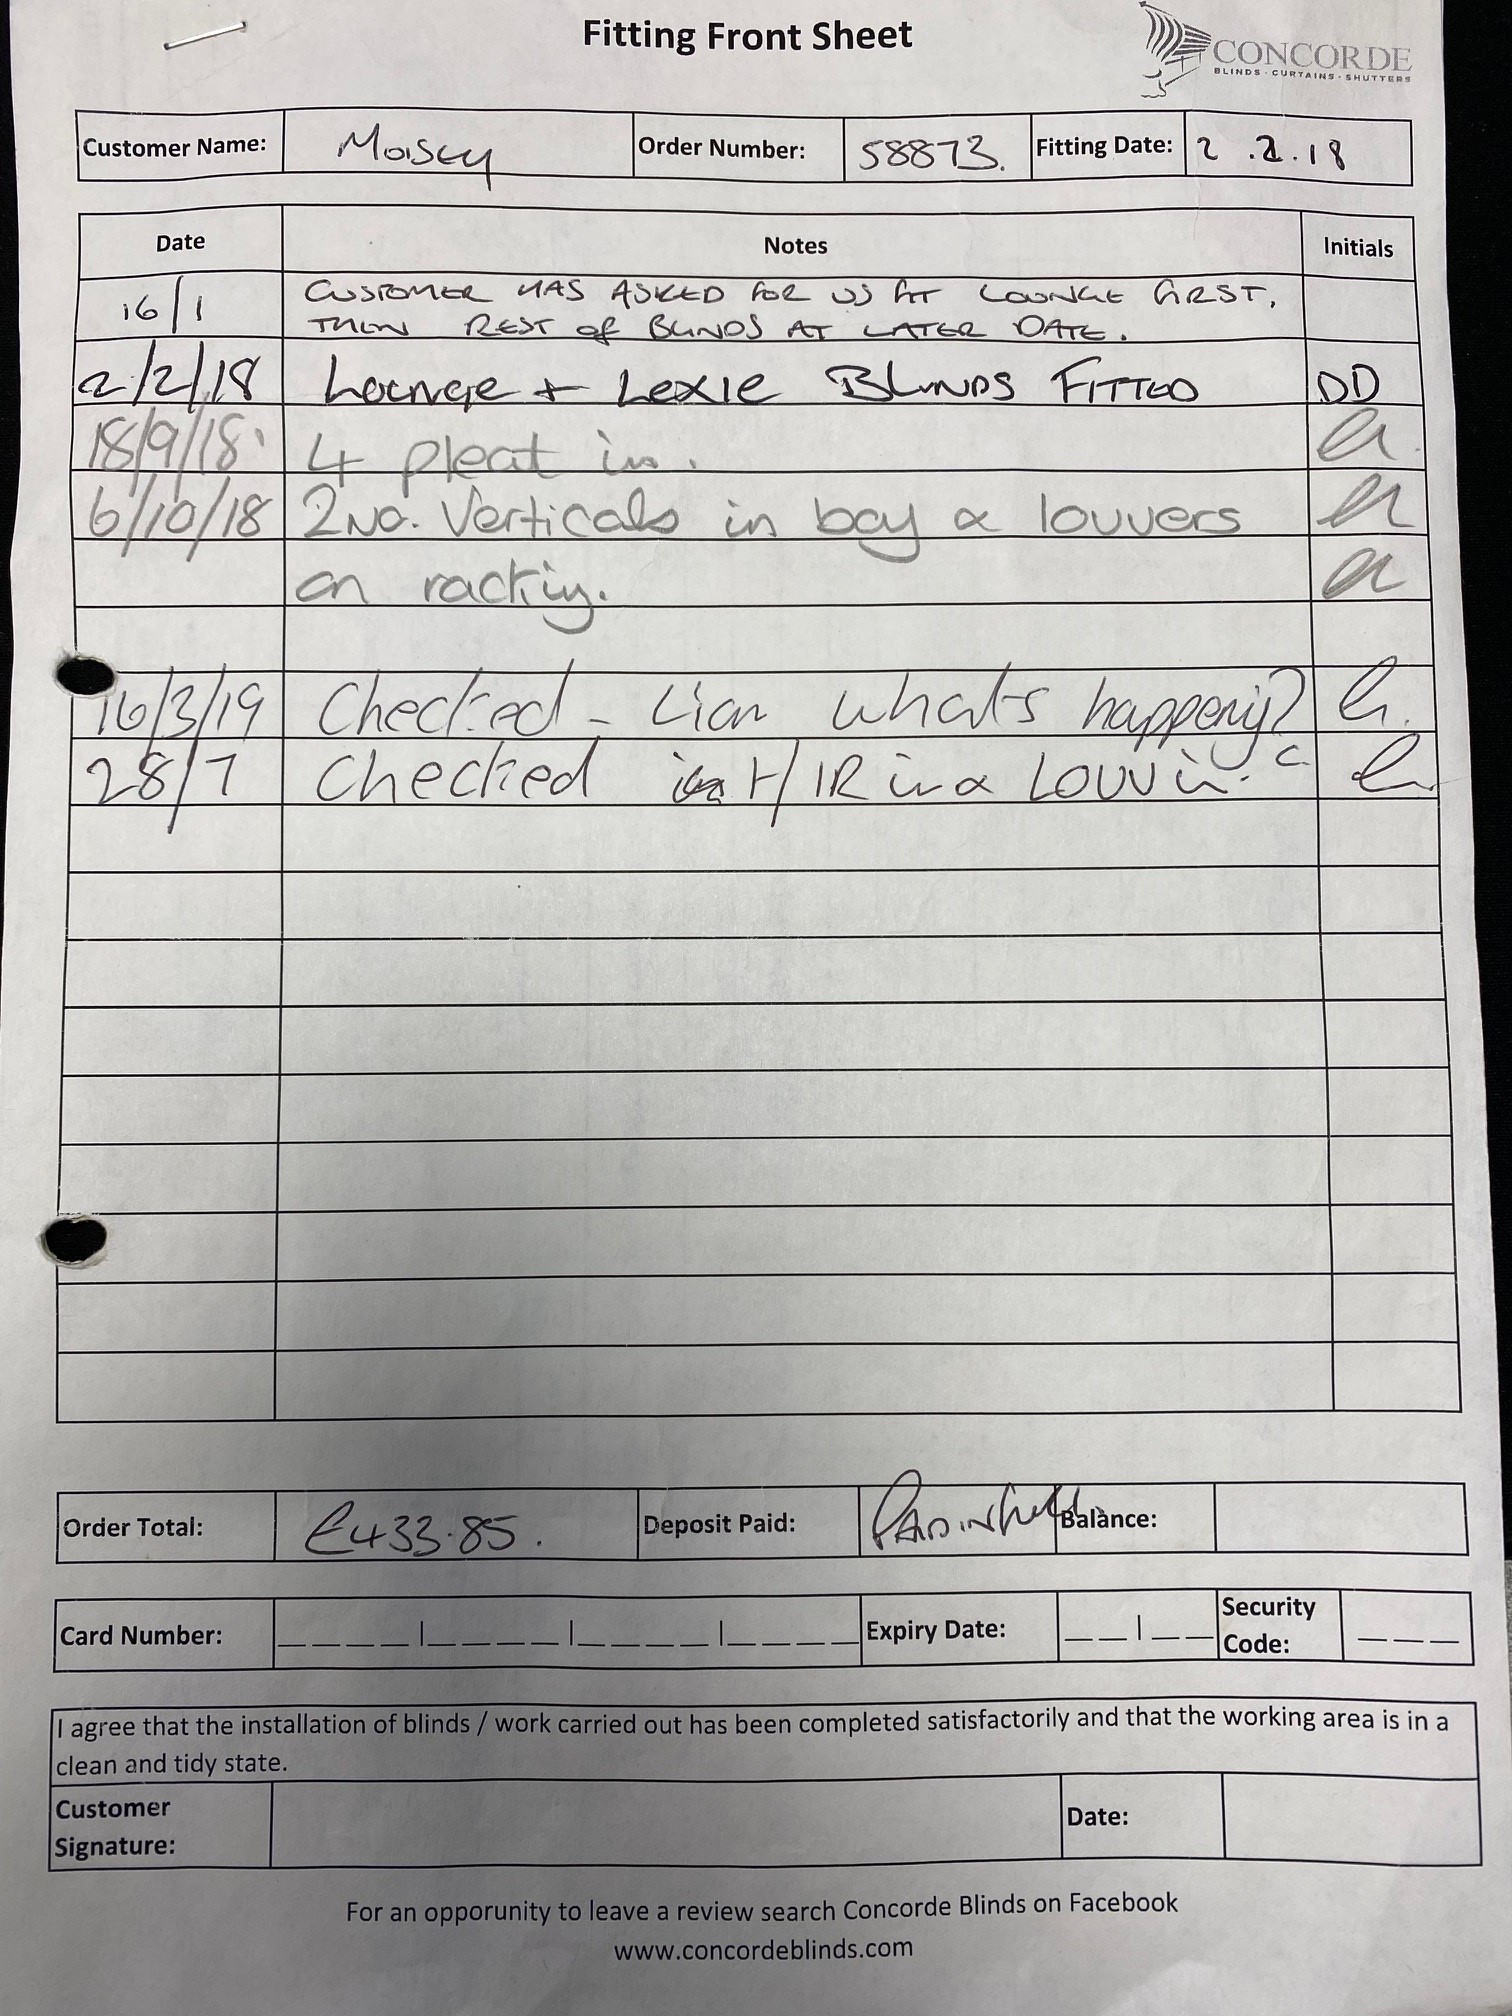 Fitting Front Sheet
CONCORDE
BLINDS · CURTAINS · SHUTTERS
Customer Name: Moisey Order Number: 58873. Fitting Date: 2.2.18
Date Notes Initials
16/1 CUSTOMER HAS ASKED FOR US FIT LOUNGE FIRST,
THEN REST OF BLINDS AT LATER DATE.
2/2/18 Lounge + Lexie BLINDS FITTED DD
18/9/18 4 pleat in.
6/10/18 2NO. Verticals in bay & louvers
on racking.
16/3/19 Checked - Lian what's happening?
28/7 Checked H/R in & Louv in.
Order Total: £433.85. Deposit Paid: PAID IN FULL Balance:
Card Number: Expiry Date: Security
Code:
I agree that the installation of blinds / work carried out has been completed satisfactorily and that the working area is in a
clean and tidy state.
Customer
Signature: Date:
For an opporunity to leave a review search Concorde Blinds on Facebook
www.concordeblinds.com